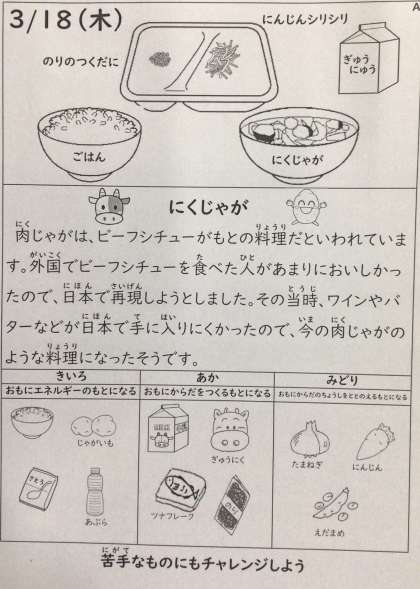 A
3/18(木)
にんじんシリシリ
のりのつくだに
ぎゅう
にゅう
ごはん
にくじゃが
にくじゃが
肉じゃがは、ビーフシチューがもとの料理だといわれていま
す。外国でビーフシチューを食べた人があまりにおいしかっ
たので、日本で再現しようとしました。その当時、ワインやバ
ターなどが日本で手に入りにくかったので、今の肉じゃがの
ような料理になったそうです。
きいろ
あか
みどり
おもにエネルギーのもとになる
おもにからだをつくるもとになる
おもにからだのちょうしをととのえるもとになる
じゃがいも
ぎゅうにく
たまねぎ
にんじん
さとう
あぶら
ツナフレーク
のり
えだまめ
苦手なものにもチャレンジしよう